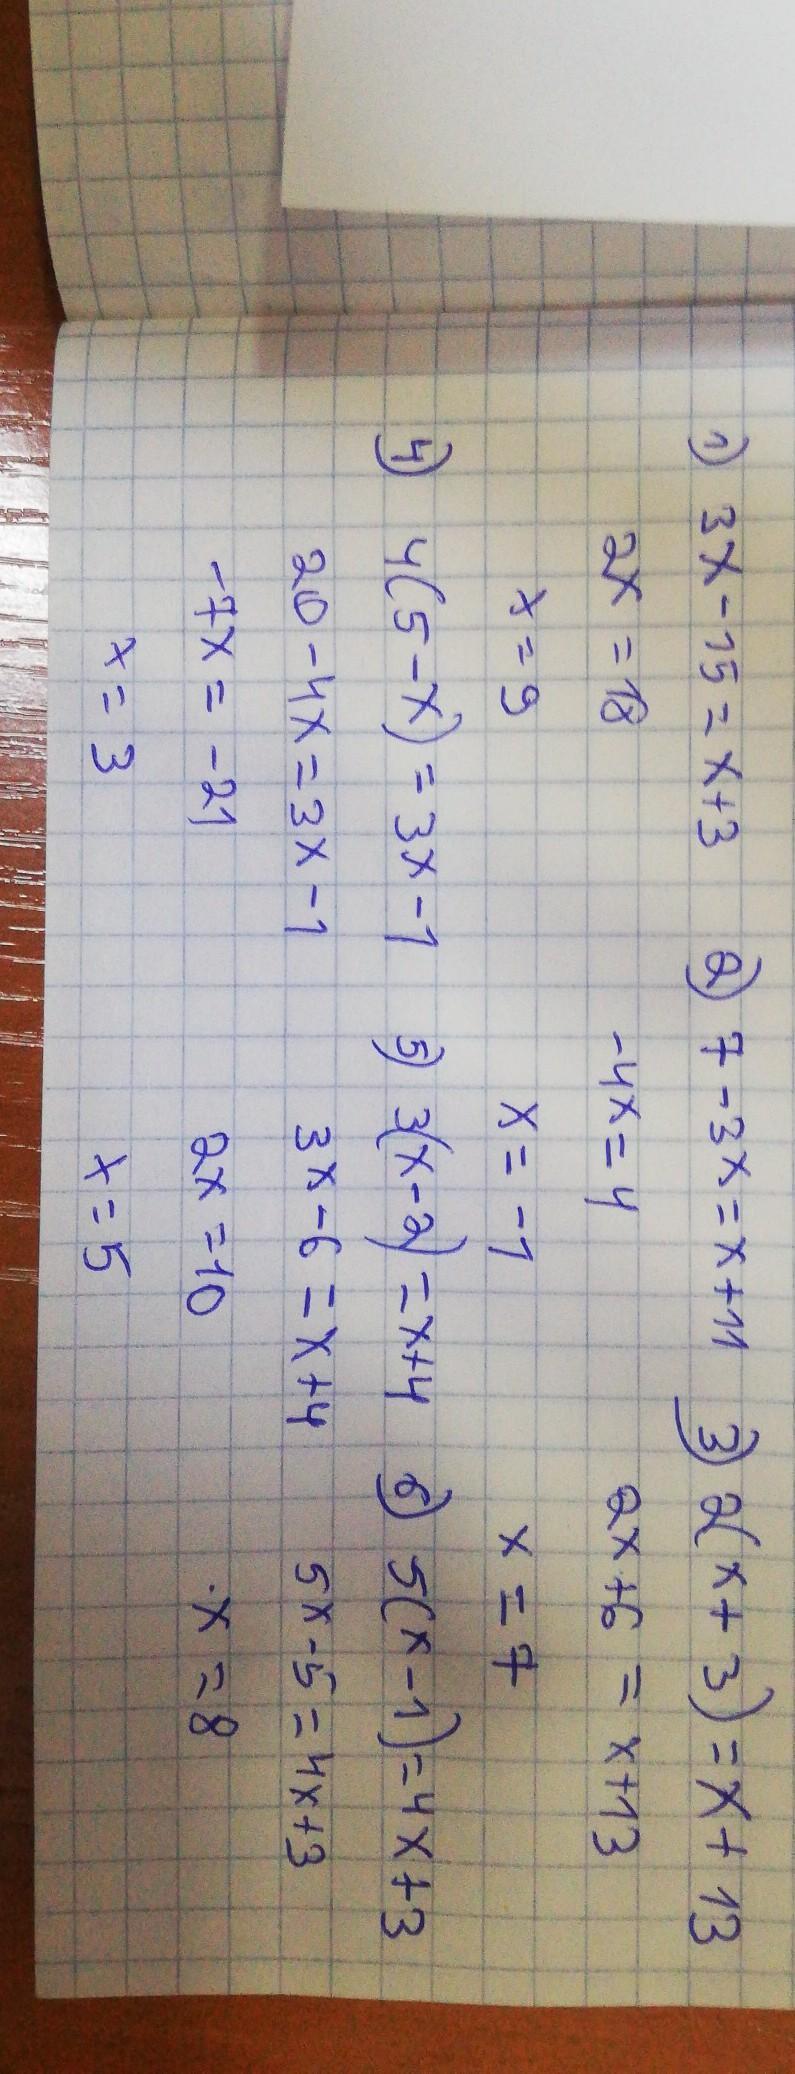 1) 3x-15=x+3
2x=18
x=9
2) 7-3x=x+11
-4x=4
x=-1
3) 2(x+3)=x+13
2x+6=x+13
x=7
4) 4(5-x)=3x-1
20-4x=3x-1
-7x=-21
x=3
5) 3(x-2)=x+4
3x-6=x+4
2x=10
x=5
6) 5(x-1)=4x+3
5x-5=4x+3
x=8